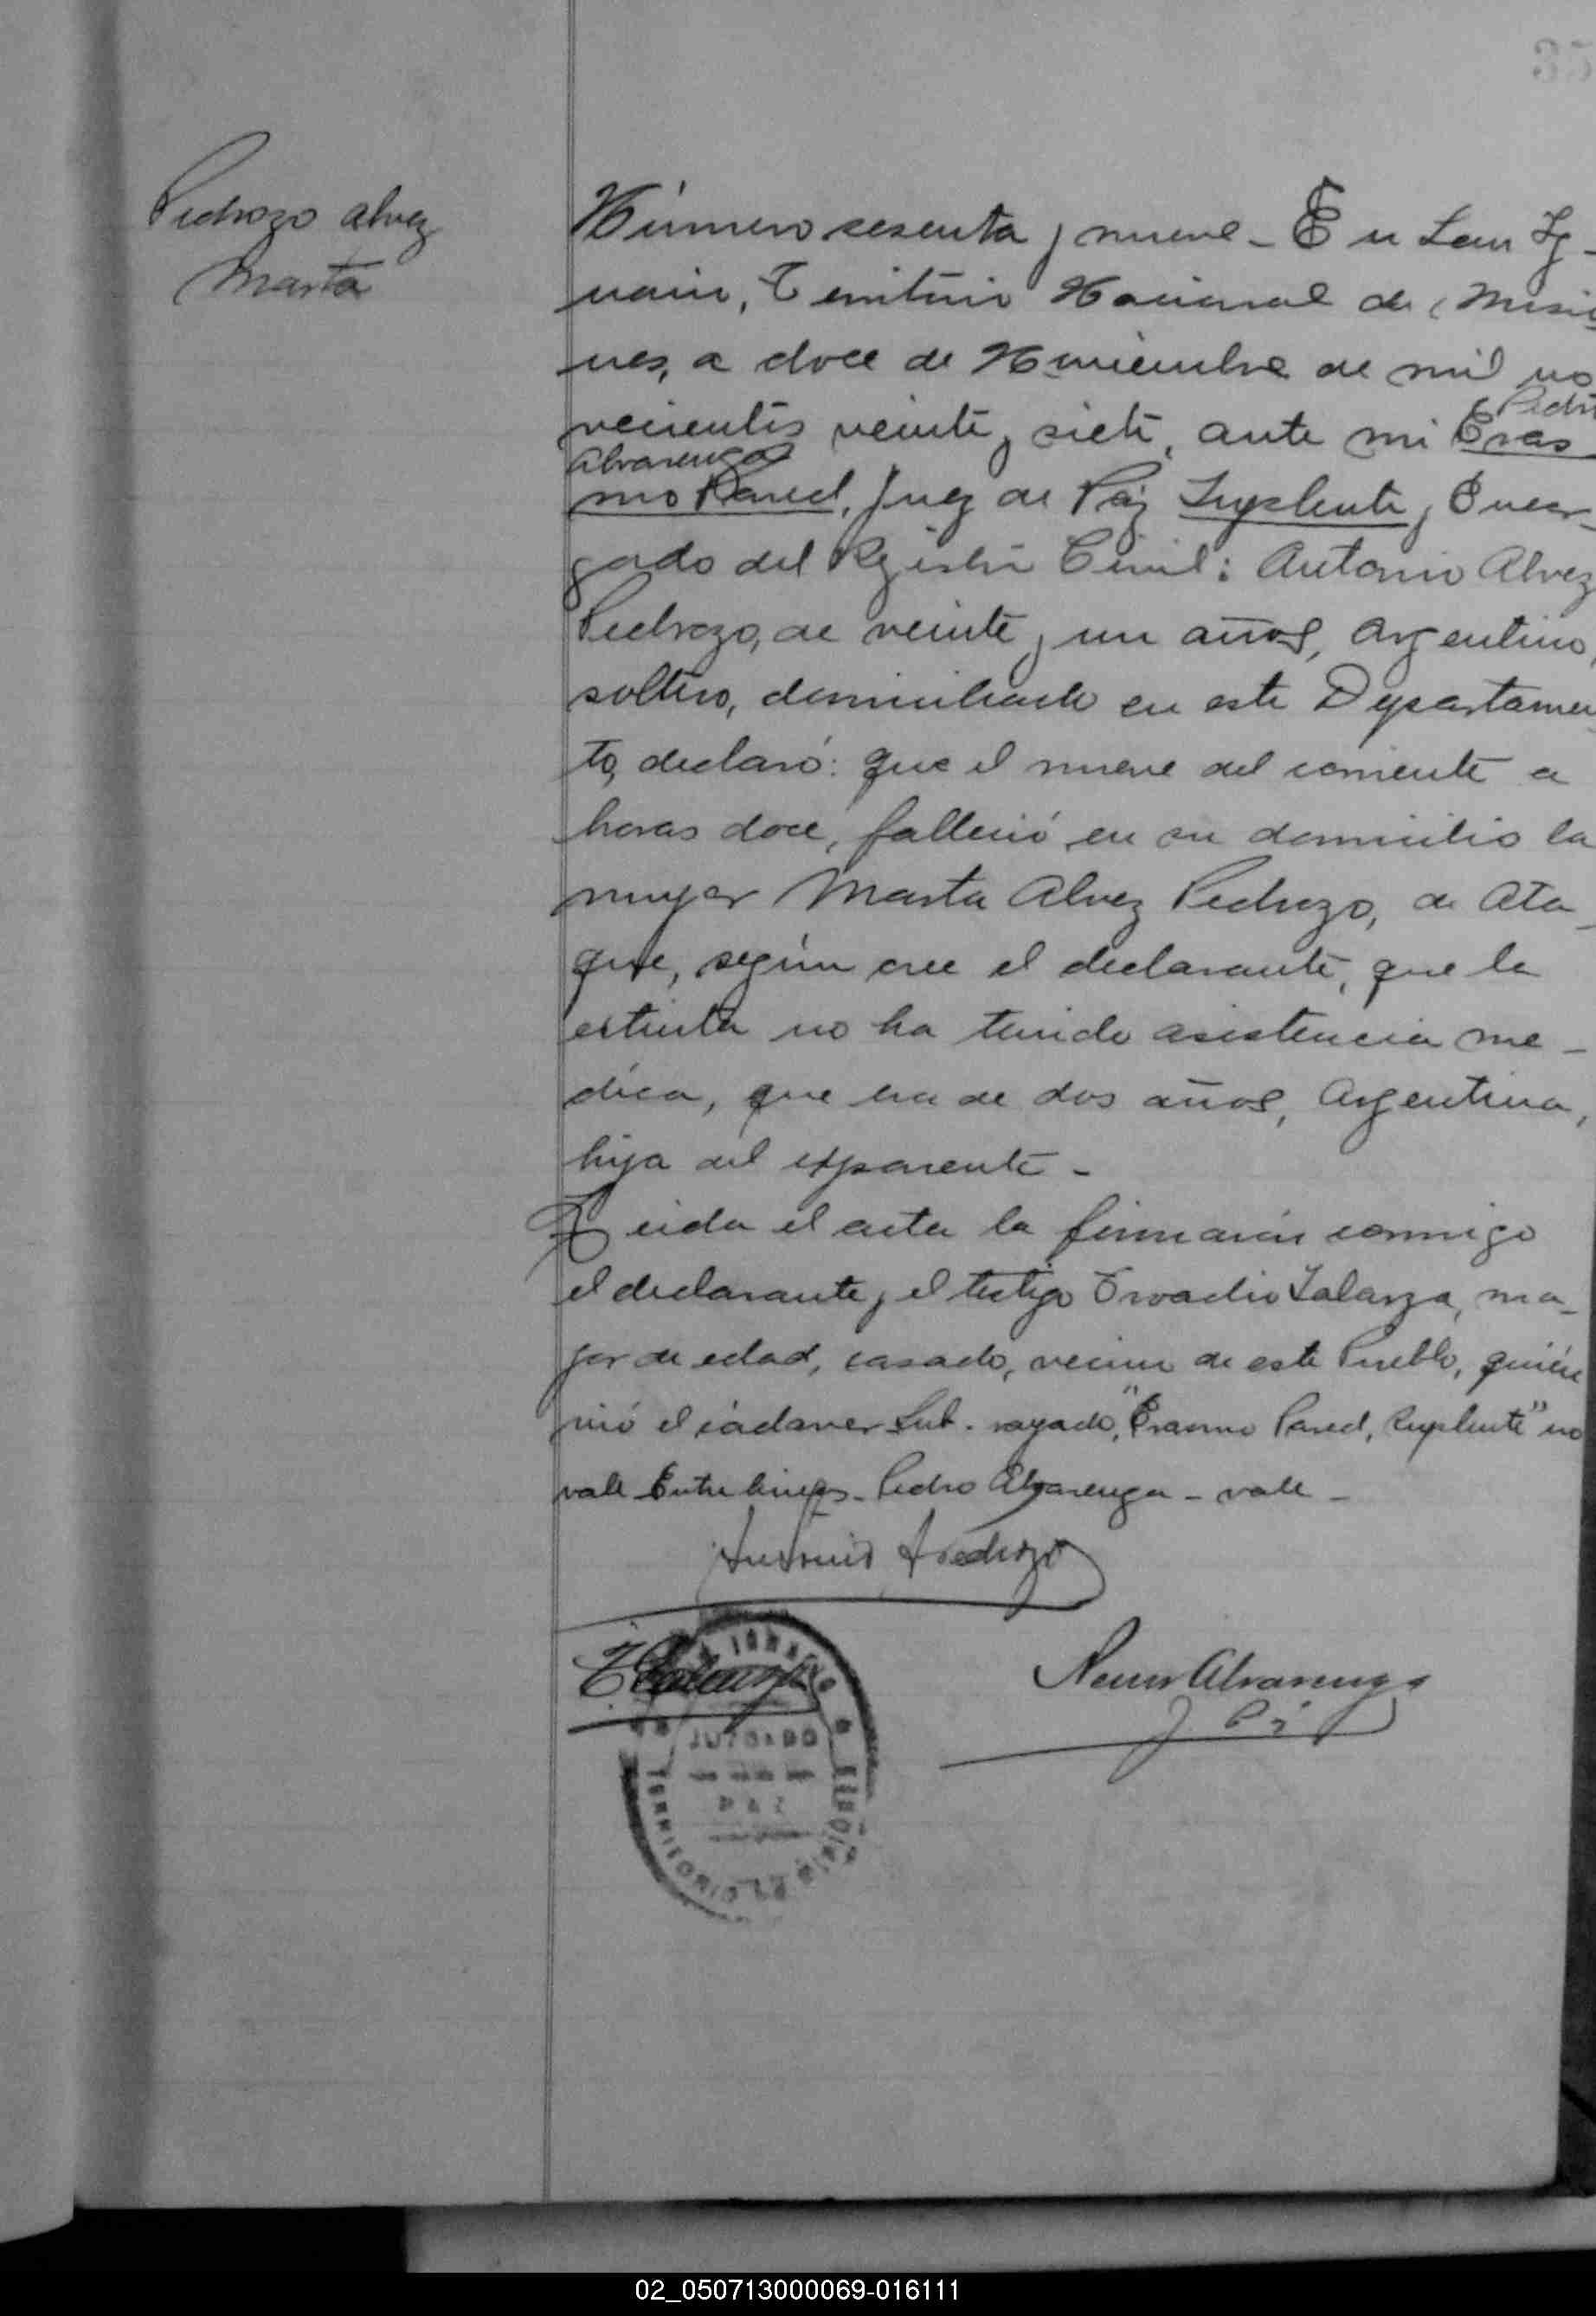 Pedrozo Alvez
Marta
Número sesenta y nueve - En San Ig-
nacio, Territorio Nacional de Misio
nes, a doce de Noviembre de mil no
Pedro
vecientos veinte y siete, ante mi Eras
Alvarenga
mo Pared, Juez de Paz Suplente y Encar-
gado del Registro Civil: Antonio Alvez
Pedrozo, de veinte y un años, Argentino,
soltero, domiciliado en este Departamen
to, declaró: que el nueve del corriente a
horas doce, falleció en su domicilio la
mujer Marta Alvez Pedrozo, de Ata-
que, según cree el declarante, que la
estinta no ha tenido asistencia me-
dica, que era de dos años, Argentina,
hija del esponente -
Leida el acta la firmarón conmigo
el declarante y el testigo Salanza, ma-
yor de edad, casado, vecino de este Pueblo, quién
vió el cádaver Sub-rayado, "Erasmo Pared, Suplente" no
vale Entre lineas - Pedro Alvarenga - vale -
Antonio Pedrozo
Alvarenga
J. P.
JUZGADO
PAZ
TERRITORIO
02_050713000069-016111